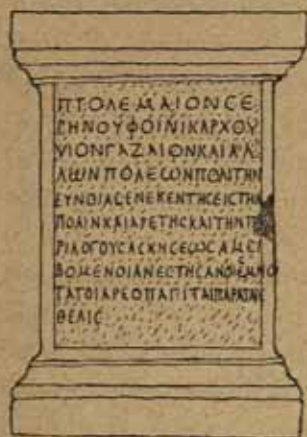 ΠΤΟΛΕΜΑΙΟΝ СΕ
ΡΗΝΟΥ ΦΟΙΝΙΚΑΡΧΟΥ
ΥΙΟΝ ΓΑΖΑΙΟΝ ΚΑΙ ΑΛ
ΛωΝ ΠΟΛΕωΝ ΠΟΛΙΤΗΝ
ΕΥΝΟΙΑС ΕΝΕΚΕΝ ΤΗС ΕΙС ΤΗΝ
ΠΟΛΙΝ ΚΑΙ ΑΡΕΤΗС ΚΑΙ ΤΗΝ Π
ΡΙ ΛΟΓΟΥС ΑСΚΗСΕωС ΑΜΕΙ
ΒΟΜΕΝΟΙ ΑΝΕСΤΗСΑΝ
ΤΑΤΟΙ ΑΡΕΟΠΑΓΙΤΑΙ
ΘΕΛΙС